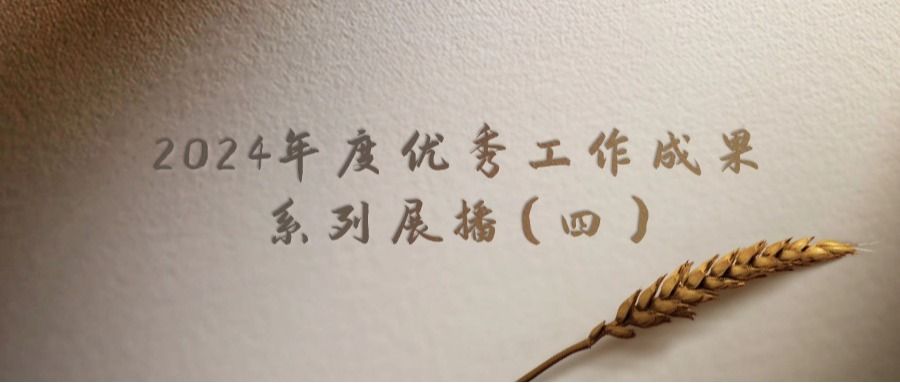 2024年度优秀工作成果
系列展播(四)